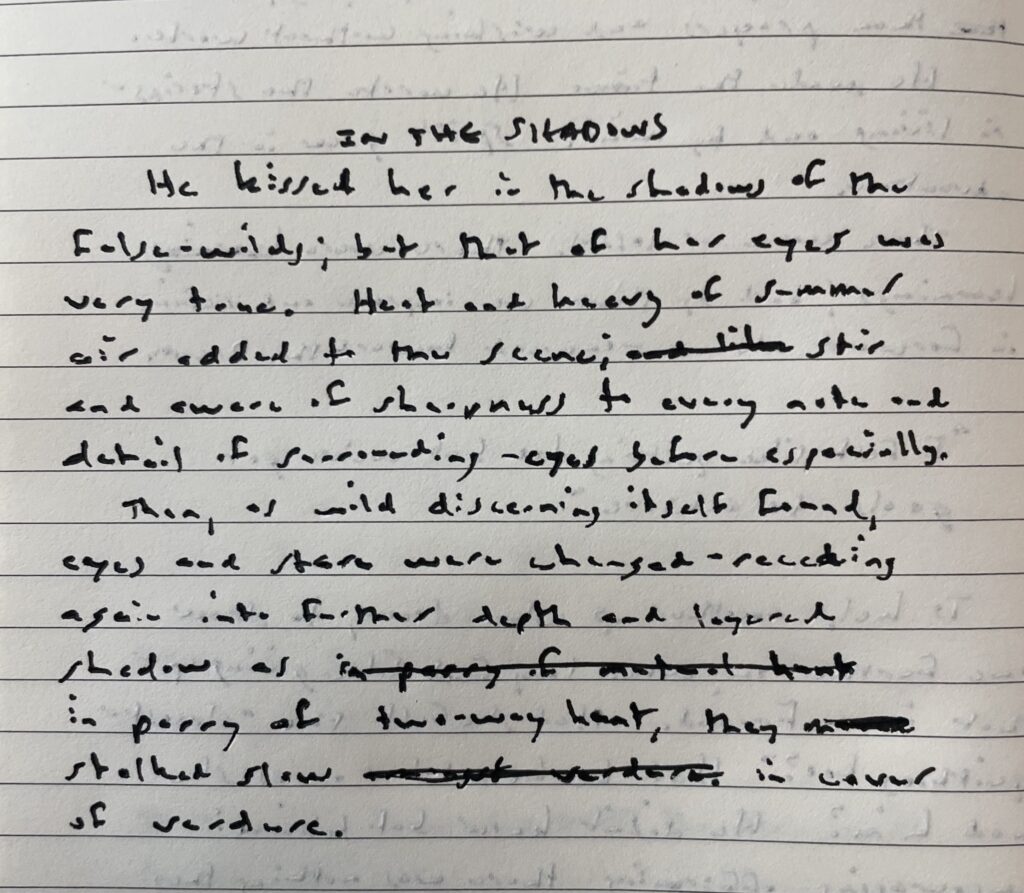 IN THE SHADOWS
He kissed her in the shadows of the
False-wilds; but that of her eyes was
very true. Heat and heavy of summer
air added to the scene; and like stir
and aware of sharpness to every note and
detail of surrounding - eyes before especially.
Then, as wild discerning itself found,
eyes and stare were changed - receding
again into further depth and layered
shadow as in parry of mutual hunt
in parry of two-way hunt, they
stalked slow amongst verdure. in cover
of verdure.